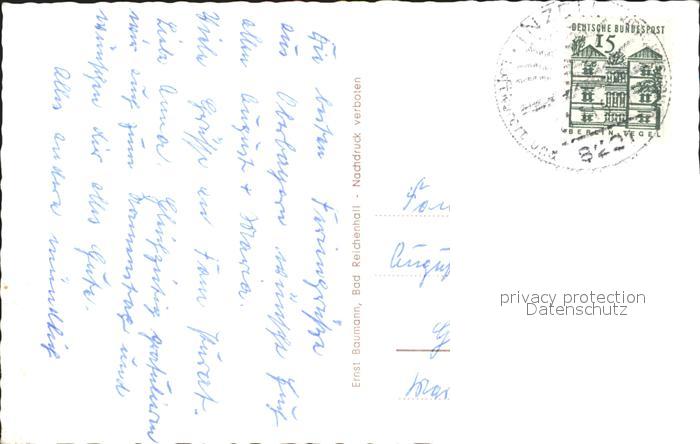 Die besten Feriengrüße
aus Oberbayern wünschen Euch
allen August + Maria.
Viele Grüße an Fam.
Liebe Anna. Gleichzeitig gratulieren
wir auf zum Namenstag und
wünschen dir alles Gute.
Alles andere mündlich
Ernst Baumann, Bad Reichenhall - Nachdruck verboten
DEUTSCHE BUNDESPOST
15
BERLIN TEGEL
INZELL
8221
Fam
Augu
privacy protection
Datenschutz